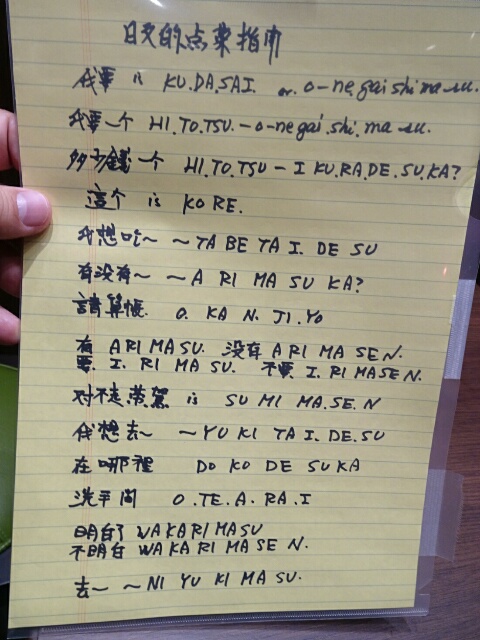 日文的点菜指南
我要 is KU.DA.SAI. or. o-ne.gai shi ma su.
我要一个 HI.TO.TSU.-o-ne gai.shi.ma su.
多少錢一个 HI.TO.TSU-I KU.RA.DE.SU.KA?
這个 is KO RE.
我想吃~ ~TA BE TA I. DE SU
有没有~ ~A RI MA SU KA?
請算帳. O. KA N. JI.YO
有 ARI MA SU. 没有 A RI MA SE N.
要 I. RI MA SU. 不要 I. RI MASE N.
对不起劳駕 is SU MI MA.SE N
我想去~ ~YU KI TA I. DE.SU
在哪裡 DO KO DE SU KA
洗手間 O.TE.A.RA.I
明白了 WAKARI MASU
不明白 WA KA RI MA SE N.
去~ ~NI YU KI MA SU.